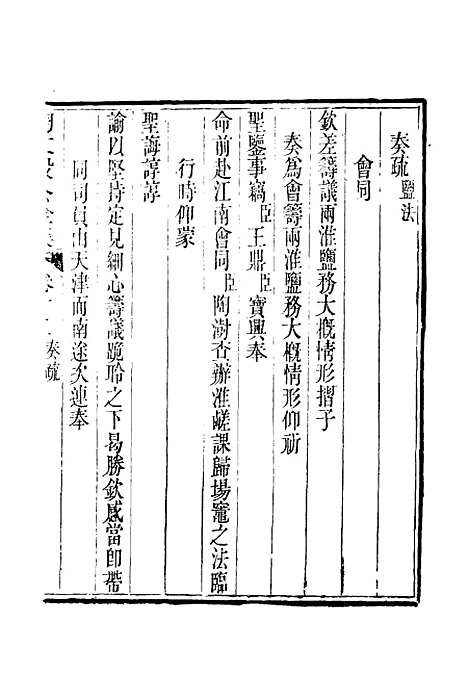 奏疏 鹽法
會同
欽差籌議兩淮鹽務大概情形摺子
奏爲會籌兩淮鹽務大概情形仰祈
聖鑒事竊臣王鼎臣寶興奉
命前赴江南會同臣陶澍查辦淮鹺課歸場竈之法臨
行時仰蒙
聖誨諄諄
諭以堅持定見細心籌議跪聆之下曷勝欽感當即帶
同司員由天津而南途次連奉
奏疏